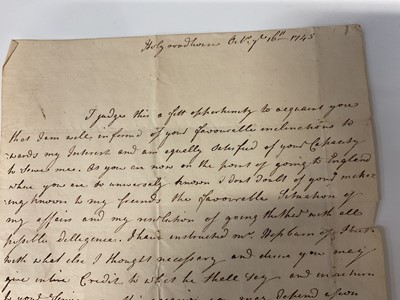 Holyroodhouse Octr. ye 16th 1745
I judge this a fitt opertunity to aquaint you
that I am well informed of your favourable inclinations to
wards my Interest and am equally satisfied of your Capacity
to serve me. As you are now on the point of going to England
where you are so universaly known I dont doubt of your mak-
ing known to my friends the favourable Situation of
my affairs and my resolution of going thither with all
possible dilligence. I have instructed Mr Hepburn of
with what else I thought necessary and desire you may
give intire Credit to what he shall say and in return
to your may depend upon